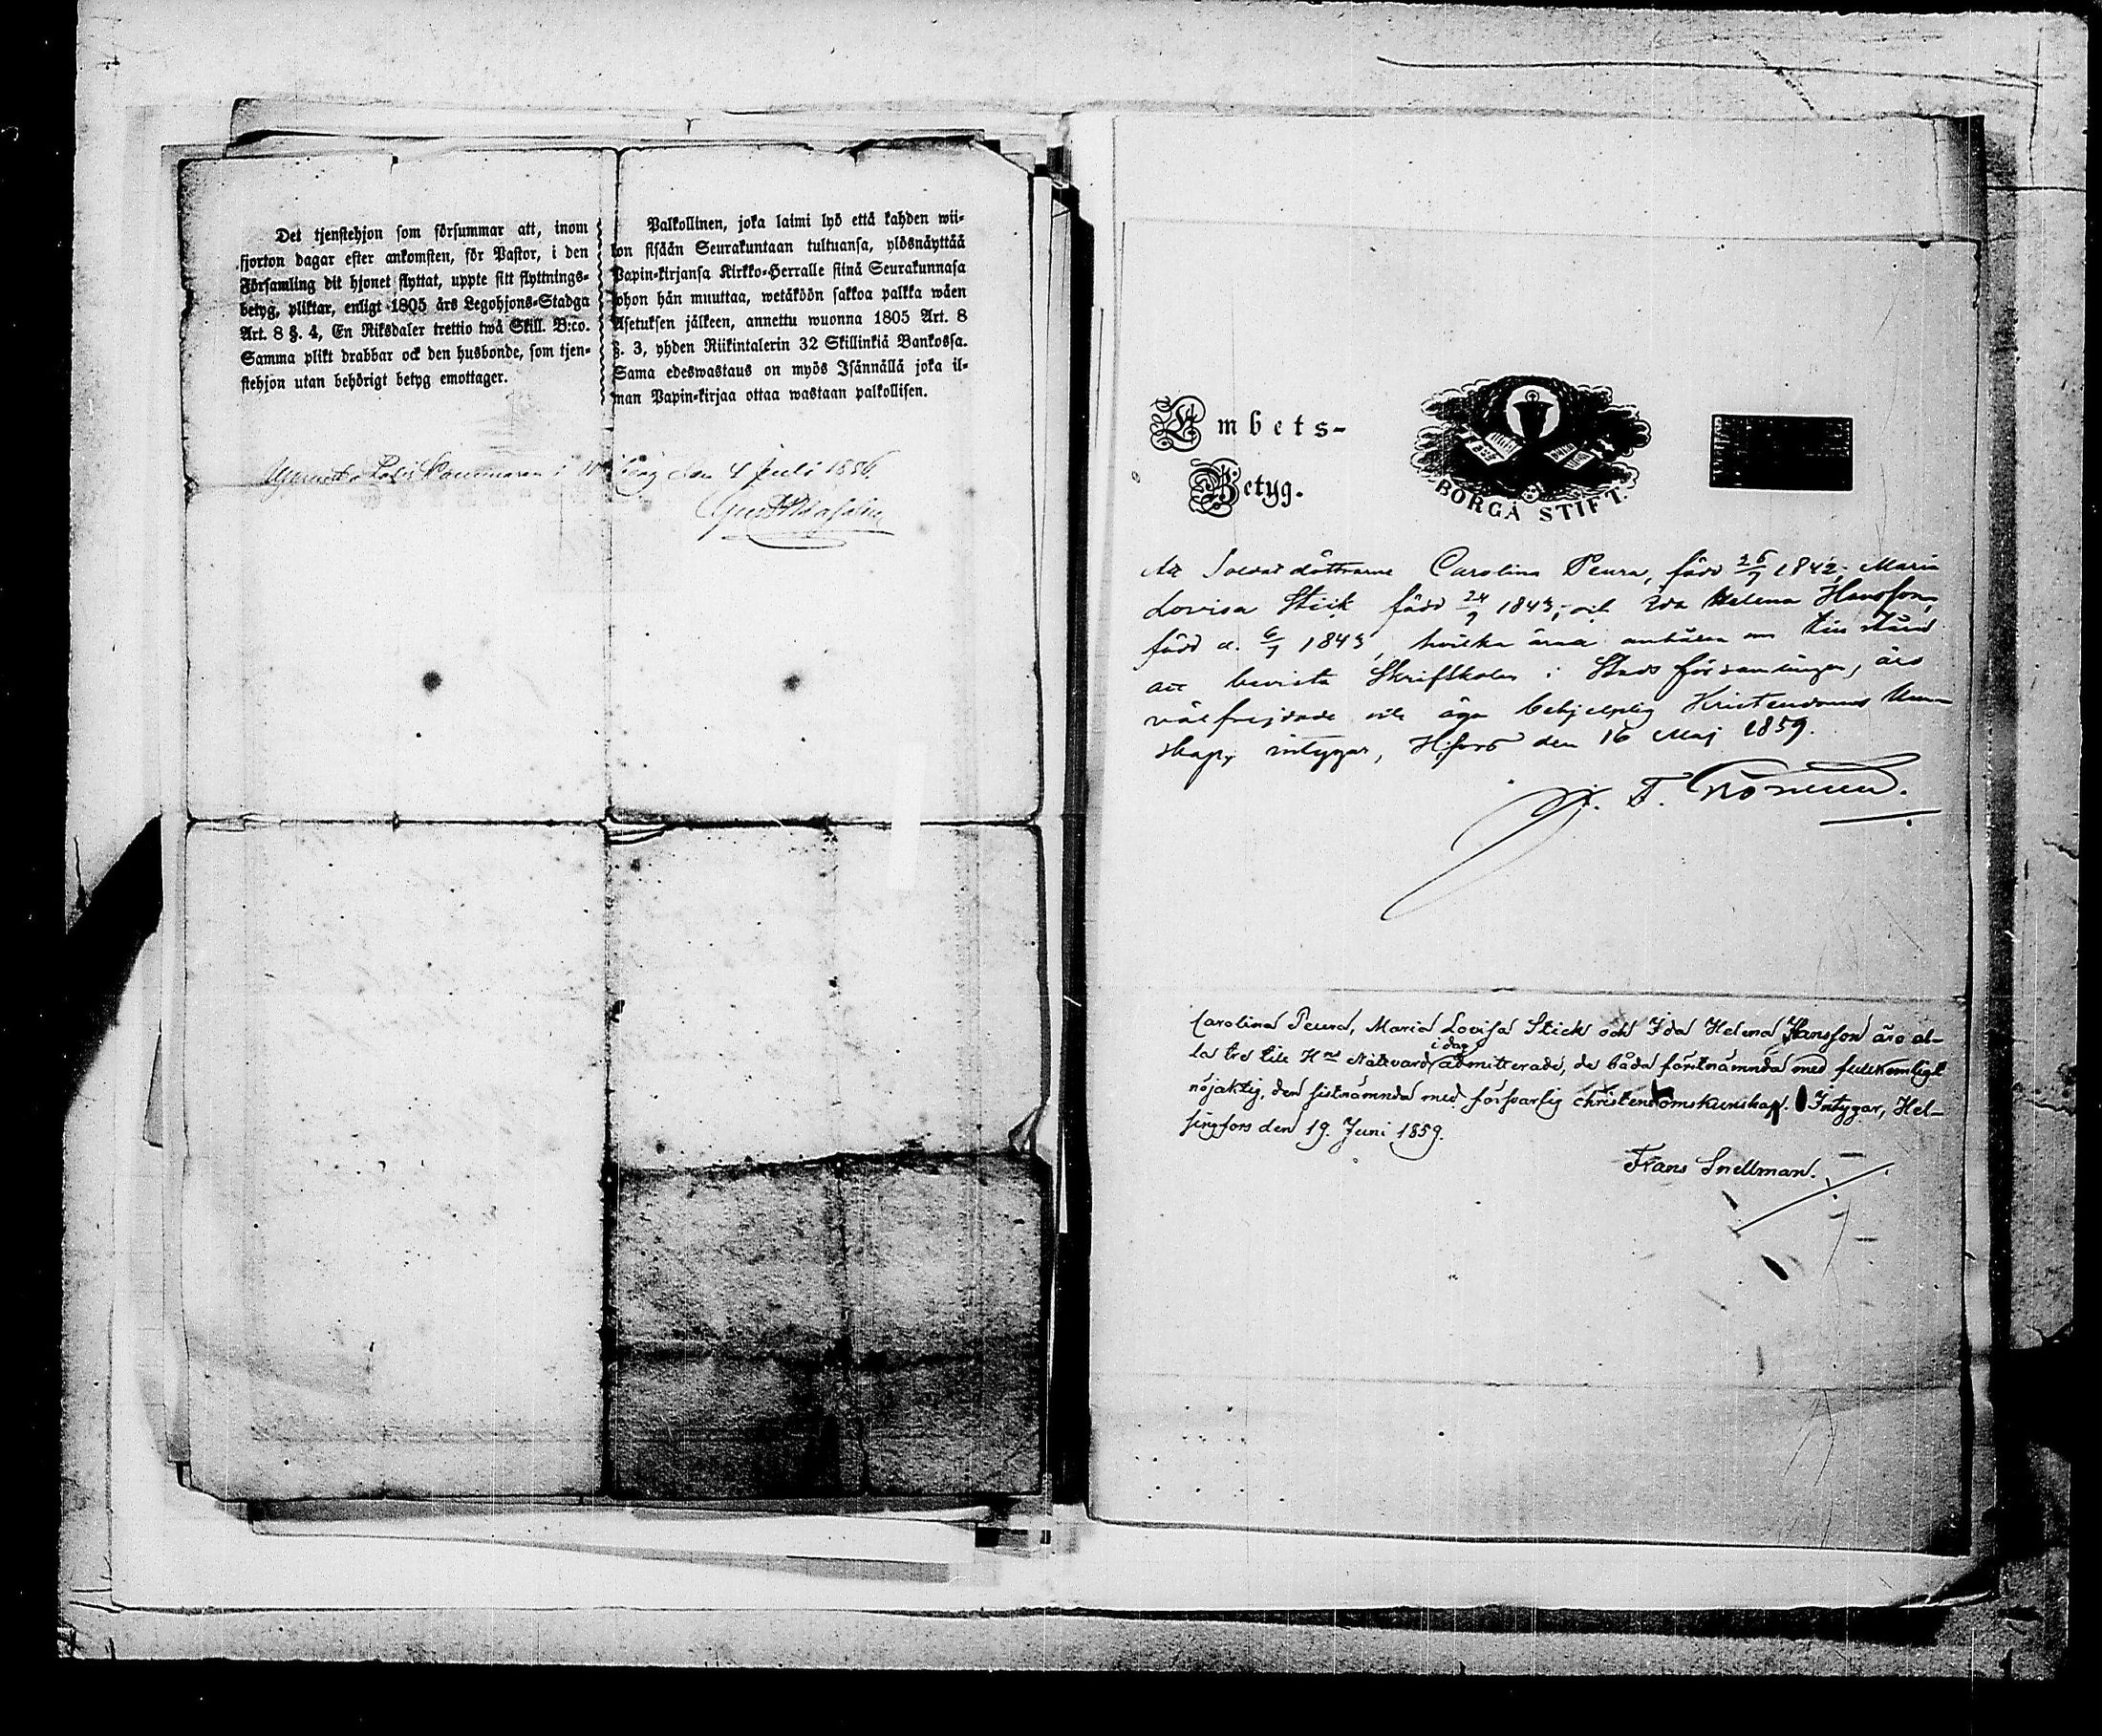 Det tjenstehjon som försummar att, inom
fjorton dagar efter ankomsten, för Pastor, i den
Församling dit hjonet flyttat, uppte sitt flyttnings-
betyg, pliktar, enligt 1805 års Legohjons-Stadga
Art. 8 §. 4, En Riksdaler trettio twå Skill. B:co.
Samma plikt drabbar ock den husbonde, som tjen-
stehjon utan behörigt betyg emottager.
Palkollinen, joka laimi lyö että kahden wii-
kon sisään Seurakuntaan tultuansa, ylösnäyttää
Papin-kirjansa Kirkko-Herralle siinä Seurakunnasa
johon hän muuttaa, wetäköön sakkoa palkka wäen
Asetuksen jälkeen, annettu wuonna 1805 Art. 8
§. 3, yhden Riikintalerin 32 Skillinkiä Bankossa.
Sama edeswastaus on myös Isännällä joka il-
man Papin-kirjaa ottaa wastaan palkollisen.
Polis Kammaren i den 4 Juli 1856.
Embets-
Betyg.
BORGÅ STIFT.
Att Soldatdöttrarne Carolina Peura, född 26/7 1842, Maria
Lovisa Stick född 24/9 1843, och Ida Helena Hansson,
född d. 6/7 1843, hvilka ärna anhålla om tillstånd
att bevista Skriftskolan i Stads församlingen, äro
välfrejdade och äga behjelplig Kristendoms kun-
skap, intygar, H:fors den 16 Maj 1859.
Carolina Peura, Maria Lovisa Stick och Ida Helena Hansson äro al-
la tre till H:ns Nattvard i dag admitterade, de båda förstnämnda med fullkomligt
nöjaktig, den sistnämnda med försvarlig christendomskunskap. Intygar, Hel-
singfors den 19. Juni 1859.
Frans Snellman.